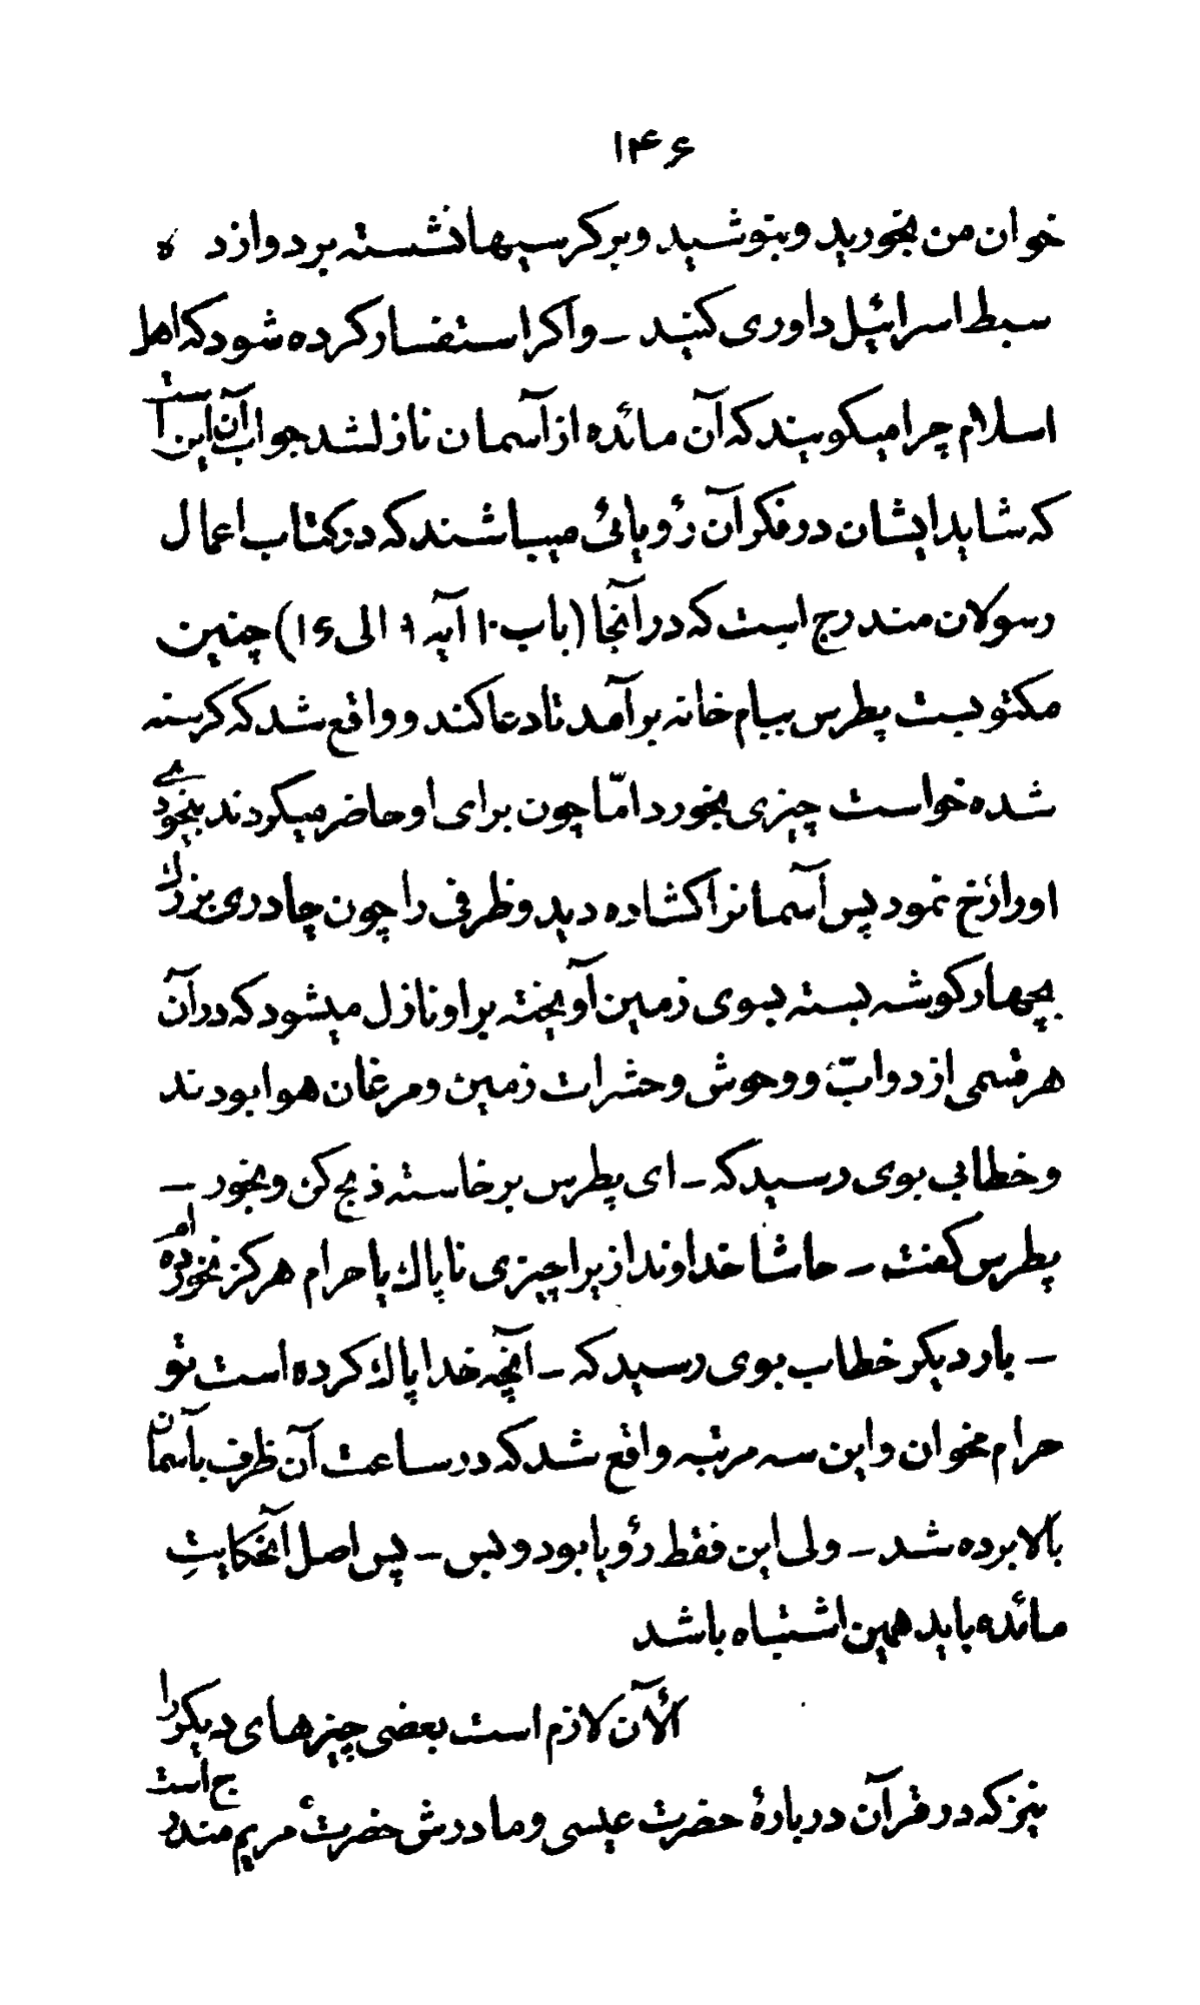 ۱۴۶
خوان من بخورید و بنوشید و بر کرسیها نشسته بر دوازده
سبط اسرائیل داوری کنید ـ و اکر استفسار کرده شود که اهل
اسلام چرا میکویند که آن مائده از آسمان نازلشد جواب آن این است
که شاید ایشان در فکر آن رؤیائی میباشند که در کتاب اعمال
رسولان مندرج است که در آنجا (باب ۱۰ آیه ۹ الی ۱۶) چنین
مکتوبست پطرس ببام خانه بر آمد تا دعا کند و واقع شد که کرسنه
شده خواست چیزی بخورد امّا چون برای او حاضر میکردند بیخودی
اورا رخ نمود پس آسمانرا کشاده دید و ظرفی را چون چادری بزرك
بچهار کوشه بسته بسوی زمین آویخته بر او نازل میشود که در آن
هر قسمی از دوابّ و وحوش و حشرات زمین و مرغان هوا بودند
و خطابی بوی رسید که ـ ای پطرس بر خاسته ذبح کن و بخور ـ
پطرس کفت ـ حاشا خداوندا زیرا چیزی ناپاك یا حرام هرکز نخورده ام
ـ بار دیکر خطاب بوی رسید که ـ آنچه خدا پاك کرده است تو
حرام مخوان و این سه مرتبه واقع شد که در ساعت آن ظرف بآسمان
بالا برده شد ـ ولی این فقط رؤیا بود و بس ـ پس اصل آنحکایتِ
مائده باید همین اشتباه باشد
الٔآن لازم است بعضی چیزهای دیکر را
نیز که در قرآن دربارهٔ حضرت عیسی و مادرش حضرت مریم مندرج است